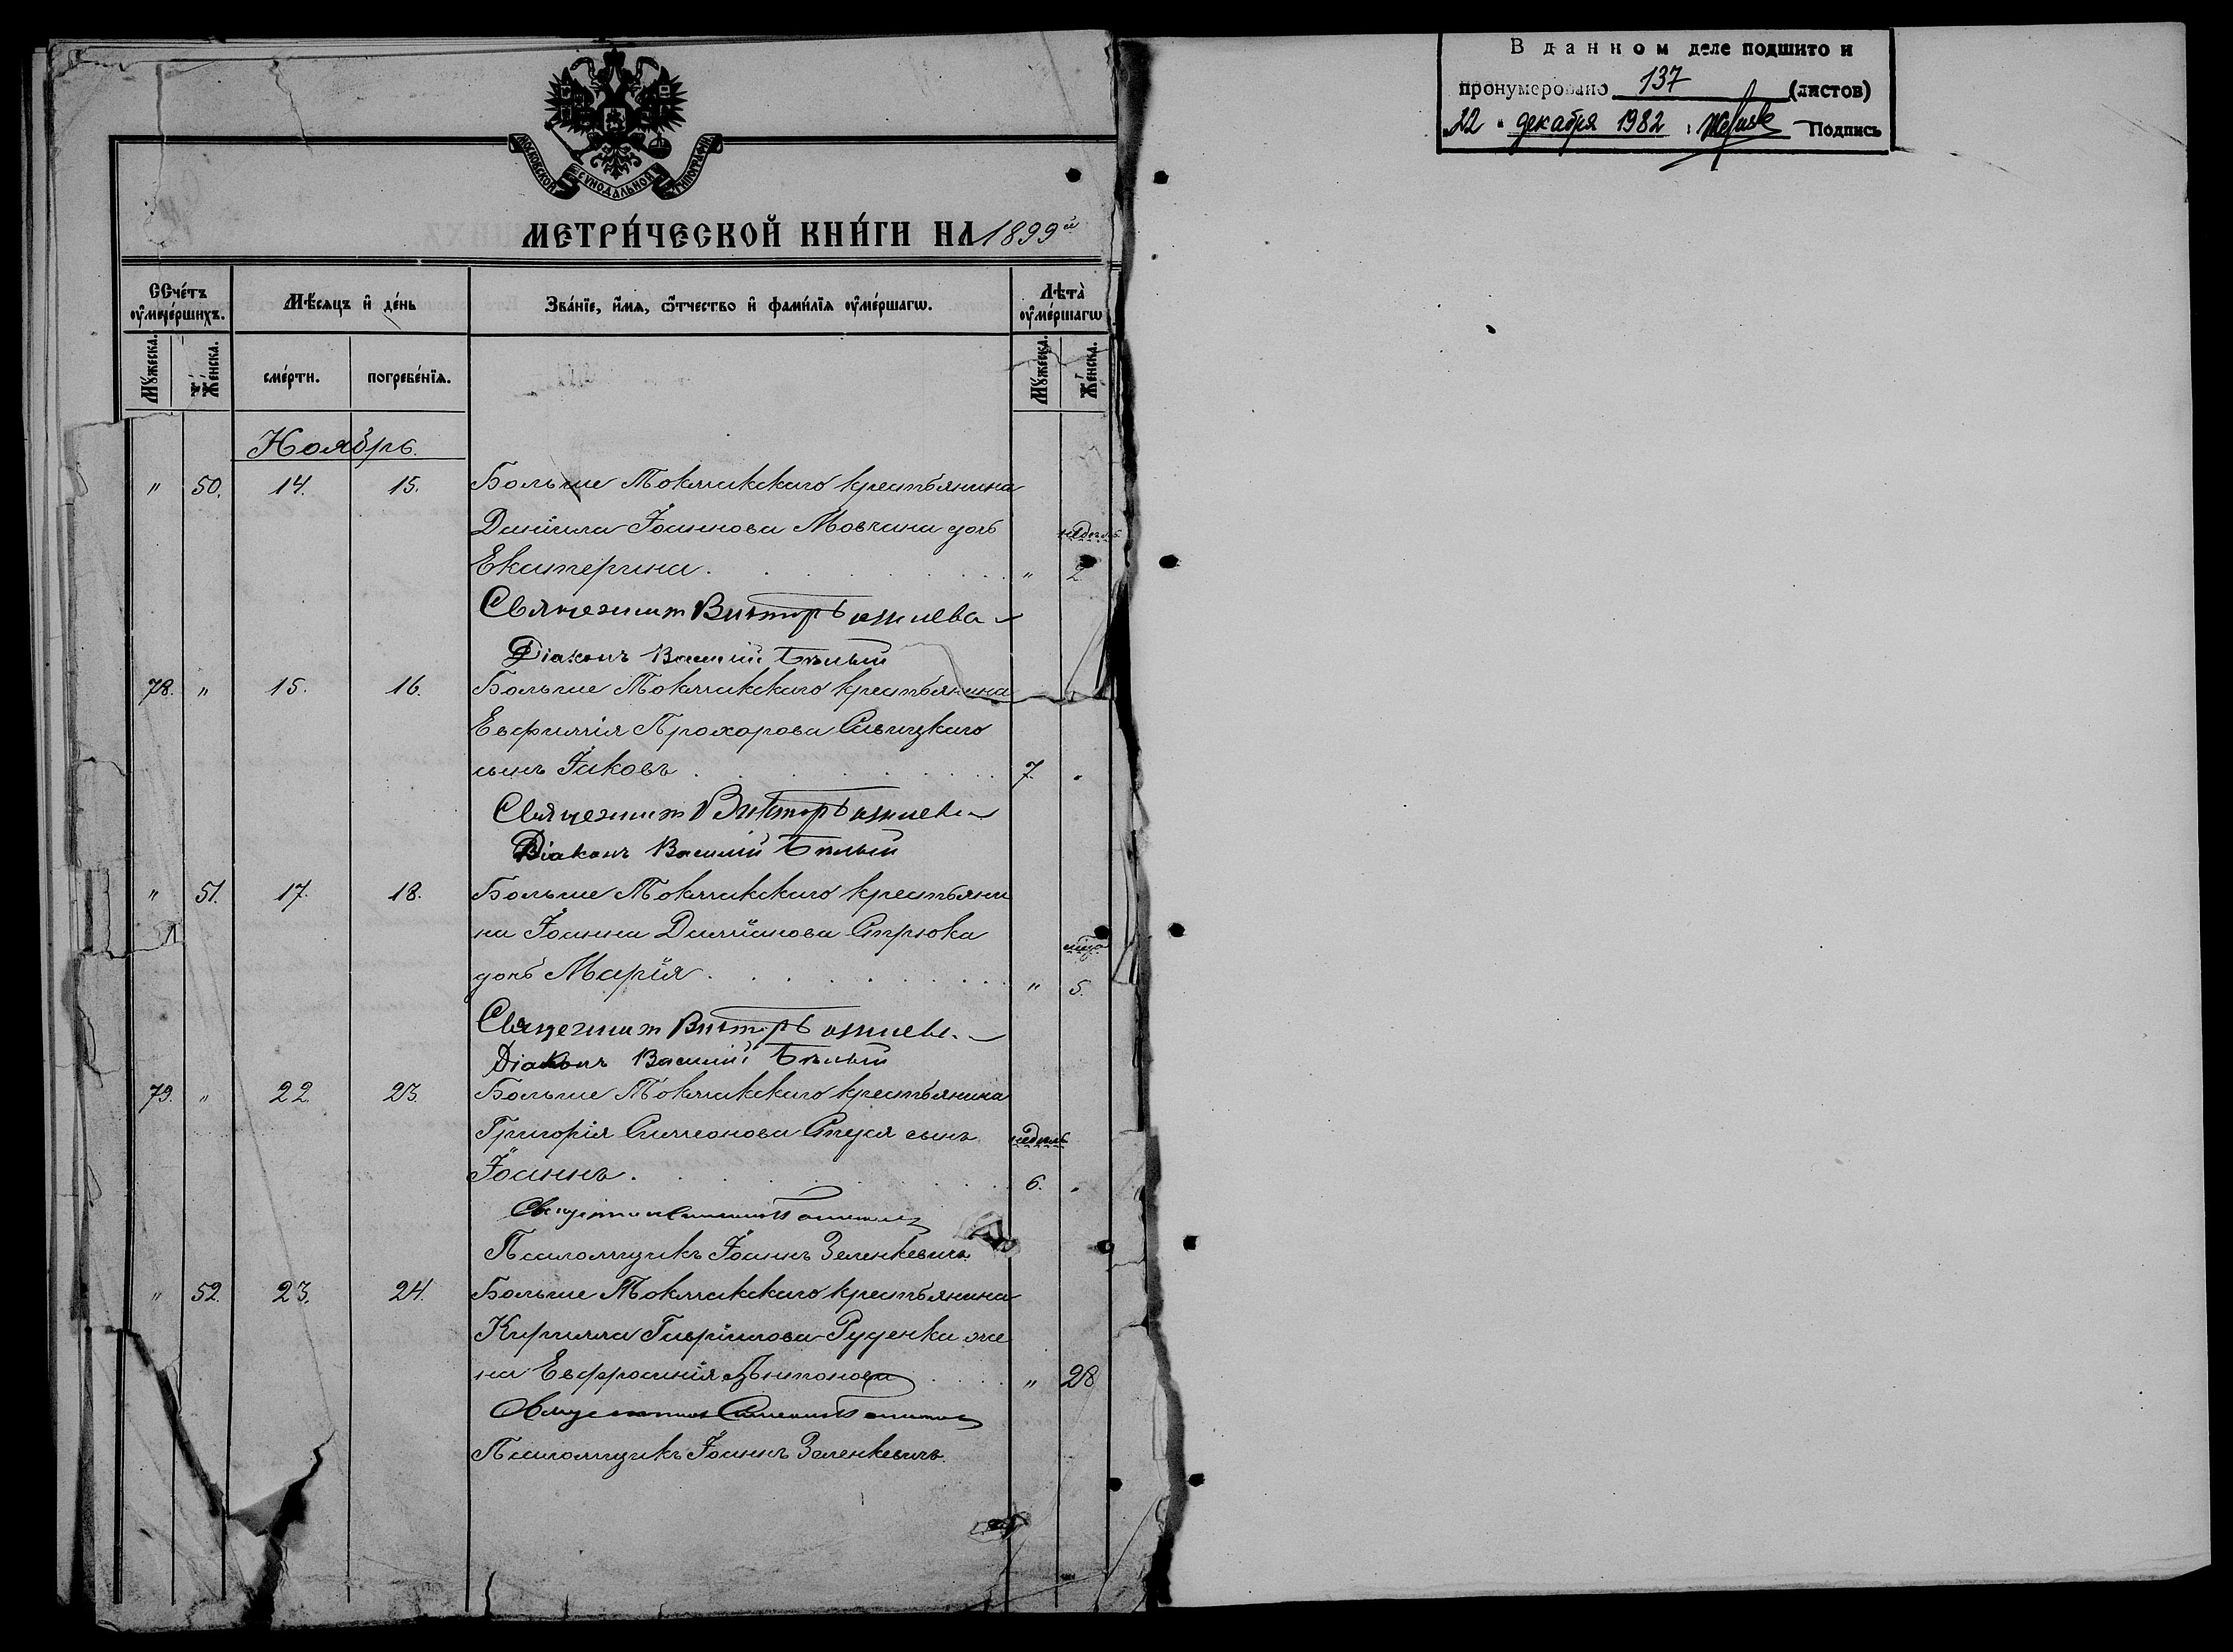 МОСКОВСКОЙ СѴНОДАЛЬНОЙ ТИПОГРАФІИ
МЕТРИ́ЧЕСКОЙ КНИ́ГИ НА 1899й
Счетъ ᲂумершихъ.
Мѣсяцъ и день
Званїе, имя, ѿчество и фамилїя ᲂумершагѡ.
Лѣта ᲂумершагѡ
Мꙋжеска.
Женска.
смерти.
погребенїя.
Мꙋжеска.
Женска.
Ноябрь.
" 50. 14. 15. Больше Токмакскаго крестьянина
Даніила Іоаннова Мовчана дочь недѣль
Екатерина. " 2
Священникъ Викторъ
Діаконъ Василій Бѣлый
78. " 15. 16. Больше Токмакскаго крестьянина
Евфимія Прохорова Савицкаго
сынъ Іаковъ 7. "
Священникъ Викторъ
Діаконъ Василій Бѣлый
" 51. 17. 18. Больше Токмакскаго крестьяни
на Іоанна Даміанова Стрюка
дочь Марія. " 5.
Священникъ Викторъ
Діаконъ Василій Бѣлый
79. " 22. 23. Больше Токмакскаго крестьянина
Григорія Симеонова сынъ недѣль
Іоаннъ. 6. "
Псаломщикъ Іоаннъ Зеленкевичъ.
" 52. 23. 24. Больше Токмакскаго крестьянина
Кирилла Гавріилова Руденка же
на Евфросинія Антонова " 28
Псаломщикъ Іоаннъ Зеленкевичъ.
В данном деле подшито и
пронумеровано 137 (листов)
„22" декабря 1982 г. Подпись